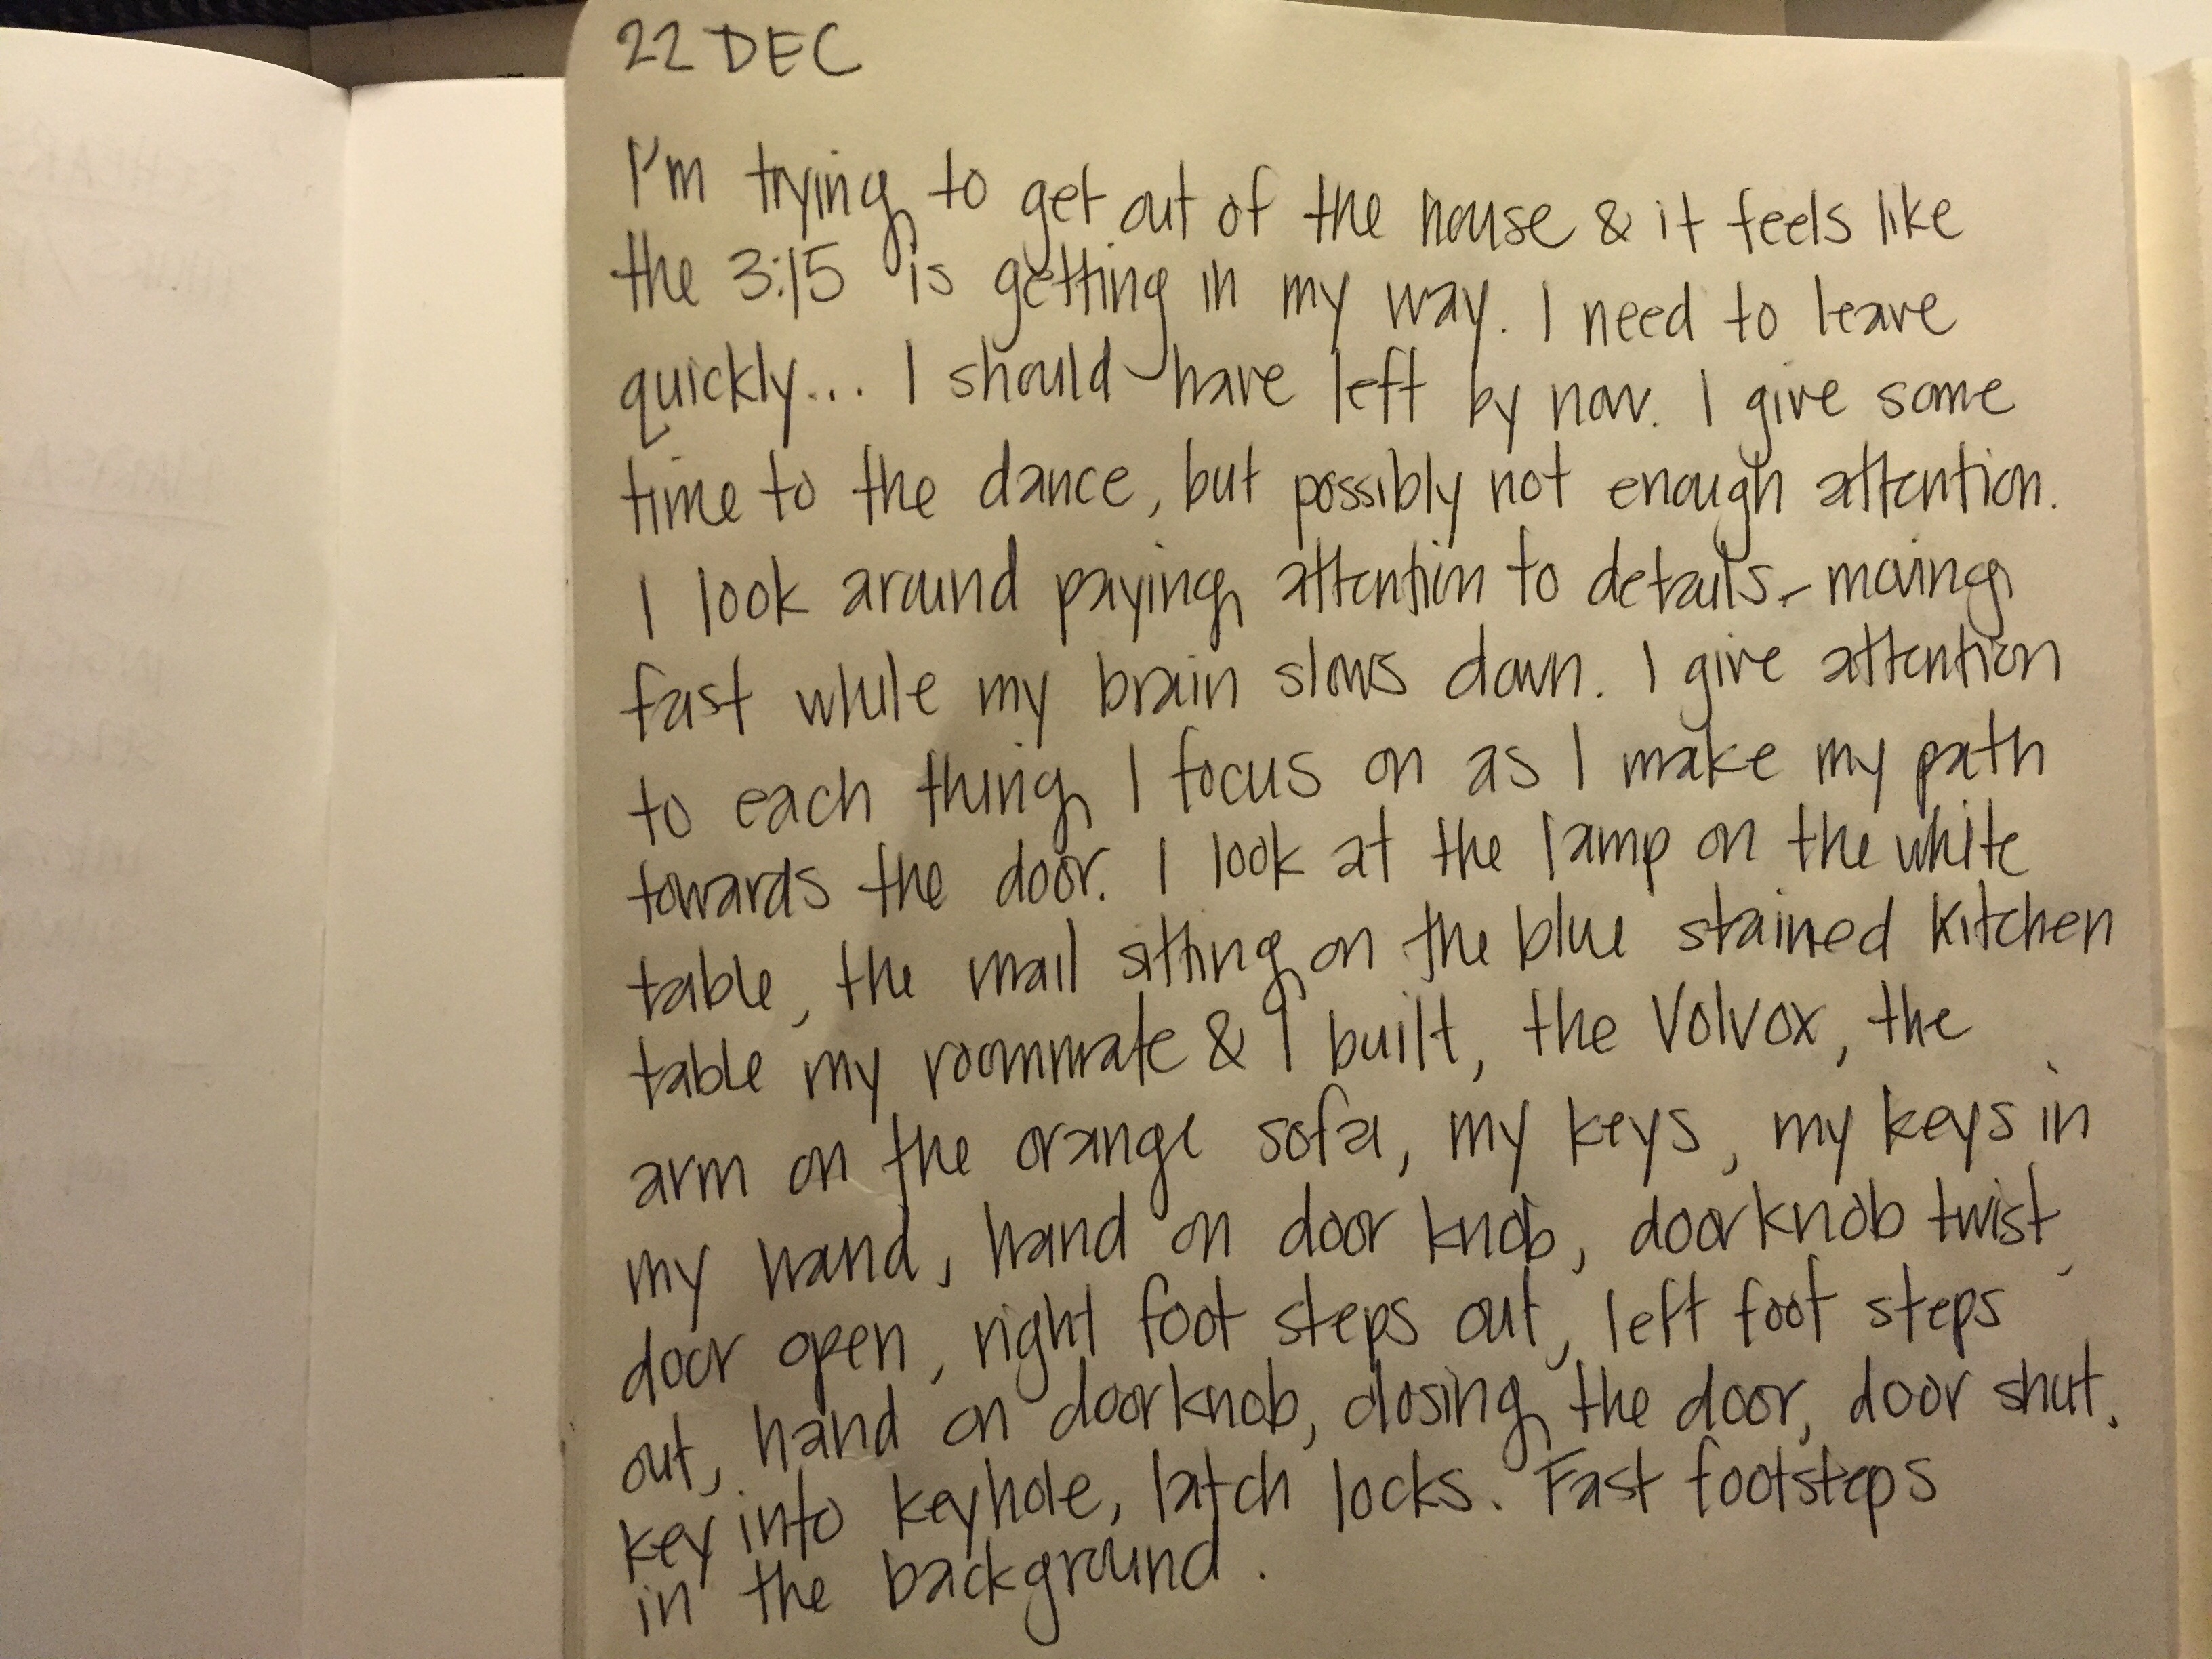 22 DEC
I'm trying to get out of the house & it feels like
the 3:15 is getting in my way. I need to leave
quickly... I should have left by now. I give some
time to the dance, but possibly not enough attention.
I look around paying attention to details - moving
fast while my brain slows down. I give attention
to each thing I focus on as I make my path
towards the door. I look at the lamp on the white
table, the mail sitting on the blue stained kitchen
table my roommate & I built, the Volvox, the
arm on the orange sofa, my keys, my keys in
my hand, hand on door knob, doorknob twist,
door open, right foot steps out, left foot steps
out, hand on doorknob, closing the door, door shut.
key into keyhole, latch locks. Fast footsteps
in the background.